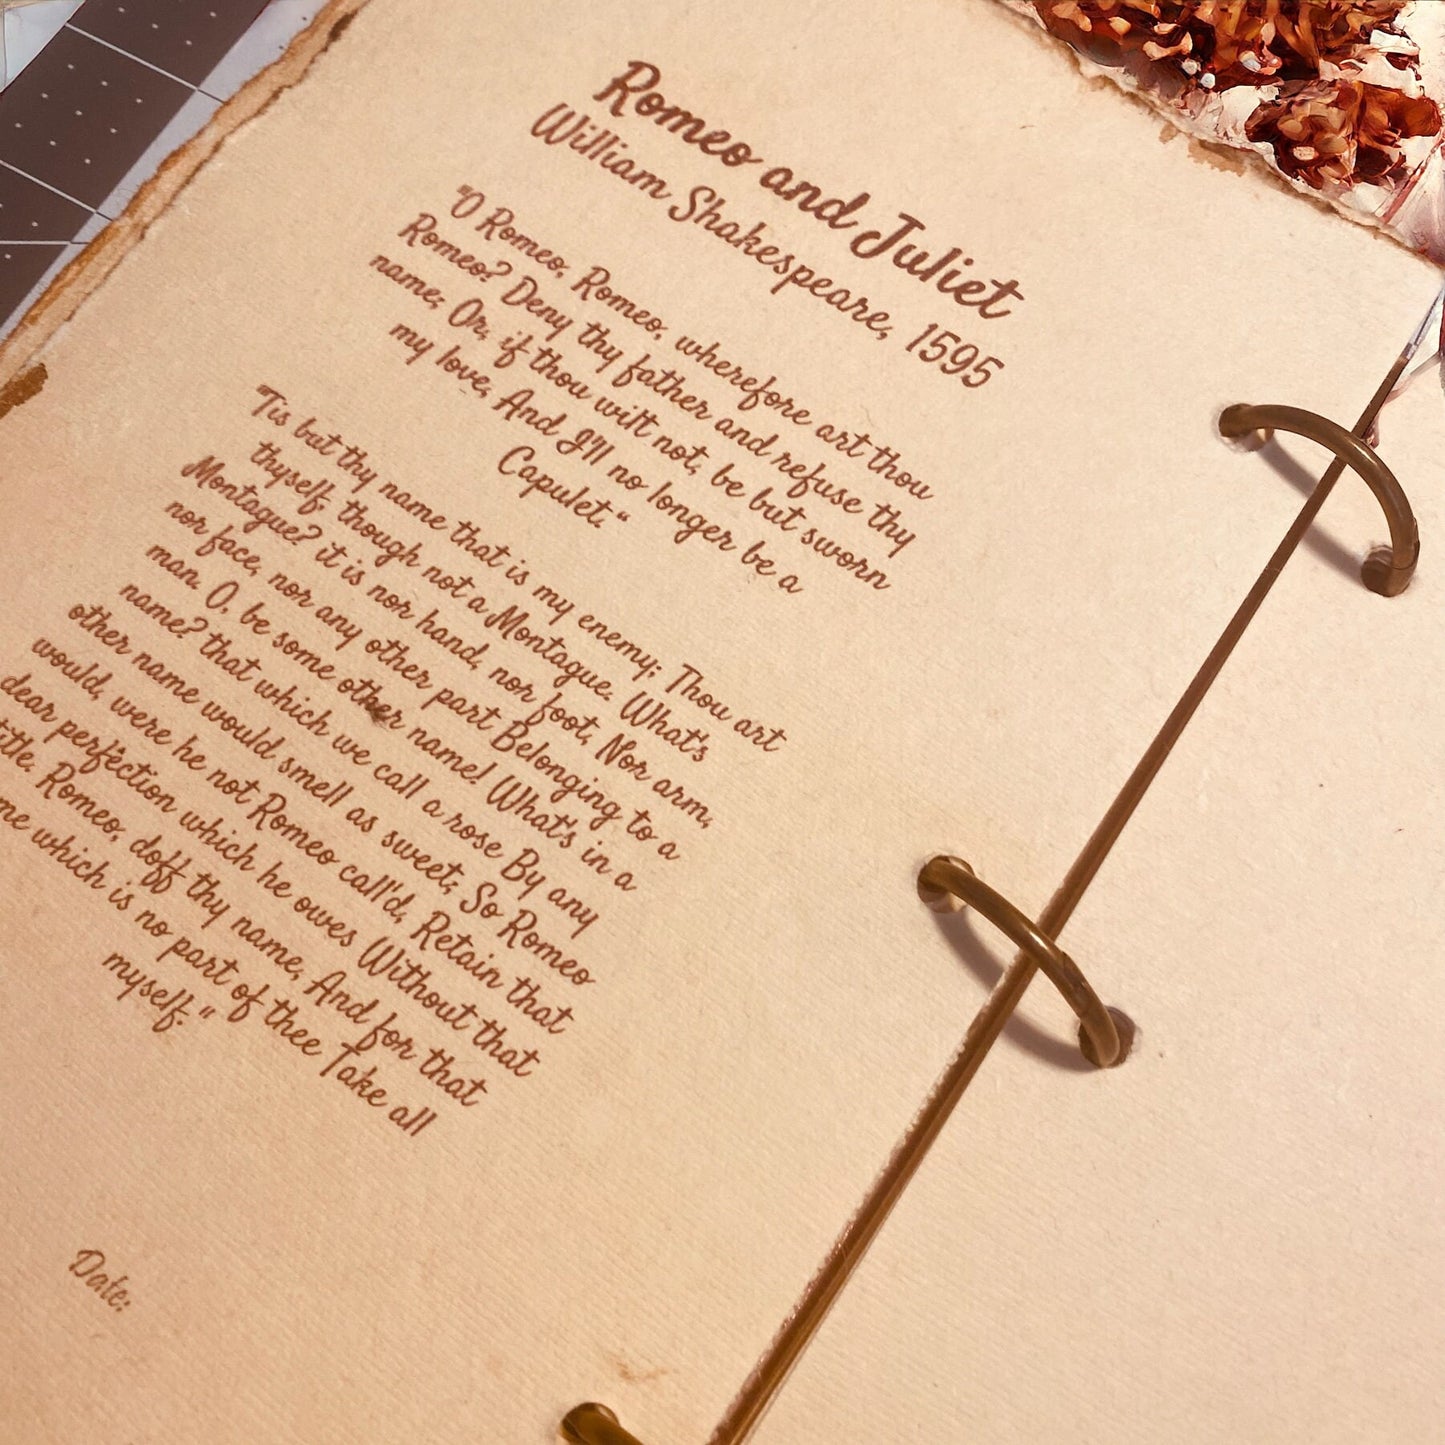 Romeo and Juliet
William Shakespeare, 1595
"O Romeo, Romeo, wherefore art thou
Romeo? Deny thy father and refuse thy
name; Or, if thou wilt not, be but sworn
my love, And I'll no longer be a
Capulet."
"Tis but thy name that is my enemy; Thou art
thyself, though not a Montague. What's
Montague? it is nor hand, nor foot, Nor arm,
nor face, nor any other part Belonging to a
man. O, be some other name! What's in a
name? that which we call a rose By any
other name would smell as sweet; So Romeo
would, were he not Romeo call'd, Retain that
dear perfection which he owes Without that
title. Romeo, doff thy name, And for that
me which is no part of thee Take all
myself."
Date: